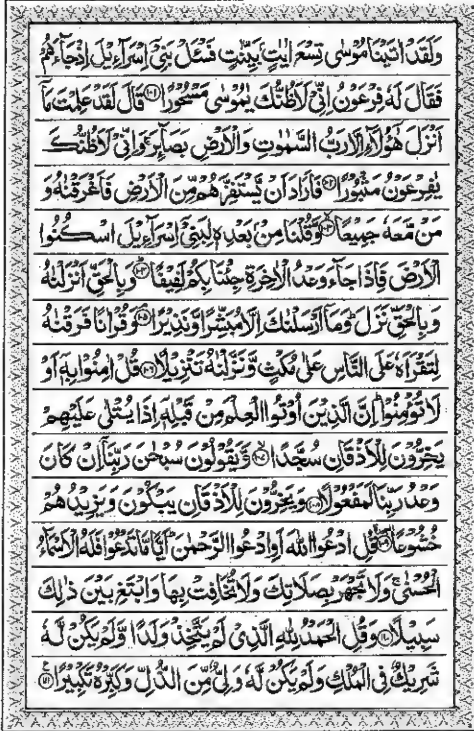 وَلَقَدْ اٰتَيْنَا مُوْسٰى تِسْعَ اٰيٰتٍۭ بَيِّنٰتٍ فَسْـَٔلْ بَنِيْٓ اِسْرَآءِيْلَ اِذْ جَآءَهُمْ
فَقَالَ لَهٗ فِرْعَوْنُ اِنِّيْ لَاَظُنُّكَ يٰمُوْسٰى مَسْحُوْرًا ﴿۱۰۱﴾ قَالَ لَقَدْ عَلِمْتَ مَآ
اَنْزَلَ هٰٓؤُلَآءِ اِلَّا رَبُّ السَّمٰوٰتِ وَالْاَرْضِ بَصَآئِرَ ۚ وَاِنِّيْ لَاَظُنُّكَ
يٰفِرْعَوْنُ مَثْبُوْرًا ﴿۱۰۲﴾ فَاَرَادَ اَنْ يَّسْتَفِزَّهُمْ مِّنَ الْاَرْضِ فَاَغْرَقْنٰهُ وَ
مَنْ مَّعَهٗ جَمِيْعًا ﴿۱۰۳﴾ وَّقُلْنَا مِنْۢ بَعْدِهٖ لِبَنِيْٓ اِسْرَآءِيْلَ اسْكُنُوا
الْاَرْضَ فَاِذَا جَآءَ وَعْدُ الْاٰخِرَةِ جِئْنَا بِكُمْ لَفِيْفًا ﴿۱۰۴﴾ وَبِالْحَقِّ اَنْزَلْنٰهُ
وَبِالْحَقِّ نَزَلَ ؕ وَمَآ اَرْسَلْنٰكَ اِلَّا مُبَشِّرًا وَّنَذِيْرًا ﴿۱۰۵﴾ وَقُرْاٰنًا فَرَقْنٰهُ
لِتَقْرَاَهٗ عَلَى النَّاسِ عَلٰى مُكْثٍ وَّنَزَّلْنٰهُ تَنْزِيْلًا ﴿۱۰۶﴾ قُلْ اٰمِنُوْا بِهٖٓ اَوْ
لَا تُؤْمِنُوْا ؕ اِنَّ الَّذِيْنَ اُوْتُوا الْعِلْمَ مِنْ قَبْلِهٖٓ اِذَا يُتْلٰى عَلَيْهِمْ
يَخِرُّوْنَ لِلْاَذْقَانِ سُجَّدًا ﴿۱۰۷﴾ وَّيَقُوْلُوْنَ سُبْحٰنَ رَبِّنَآ اِنْ كَانَ
وَعْدُ رَبِّنَا لَمَفْعُوْلًا ﴿۱۰۸﴾ وَيَخِرُّوْنَ لِلْاَذْقَانِ يَبْكُوْنَ وَيَزِيْدُهُمْ
خُشُوْعًا ﴿۱۰۹﴾ قُلِ ادْعُوا اللّٰهَ اَوِ ادْعُوا الرَّحْمٰنَ ؕ اَيًّا مَّا تَدْعُوْا فَلَهُ الْاَسْمَآءُ
الْحُسْنٰى ۚ وَلَا تَجْهَرْ بِصَلَاتِكَ وَلَا تُخَافِتْ بِهَا وَابْتَغِ بَيْنَ ذٰلِكَ
سَبِيْلًا ﴿۱۱۰﴾ وَقُلِ الْحَمْدُ لِلّٰهِ الَّذِيْ لَمْ يَتَّخِذْ وَلَدًا وَّلَمْ يَكُنْ لَّهٗ
شَرِيْكٌ فِي الْمُلْكِ وَلَمْ يَكُنْ لَّهٗ وَلِيٌّ مِّنَ الذُّلِّ وَكَبِّرْهُ تَكْبِيْرًا ﴿۱۱۱﴾